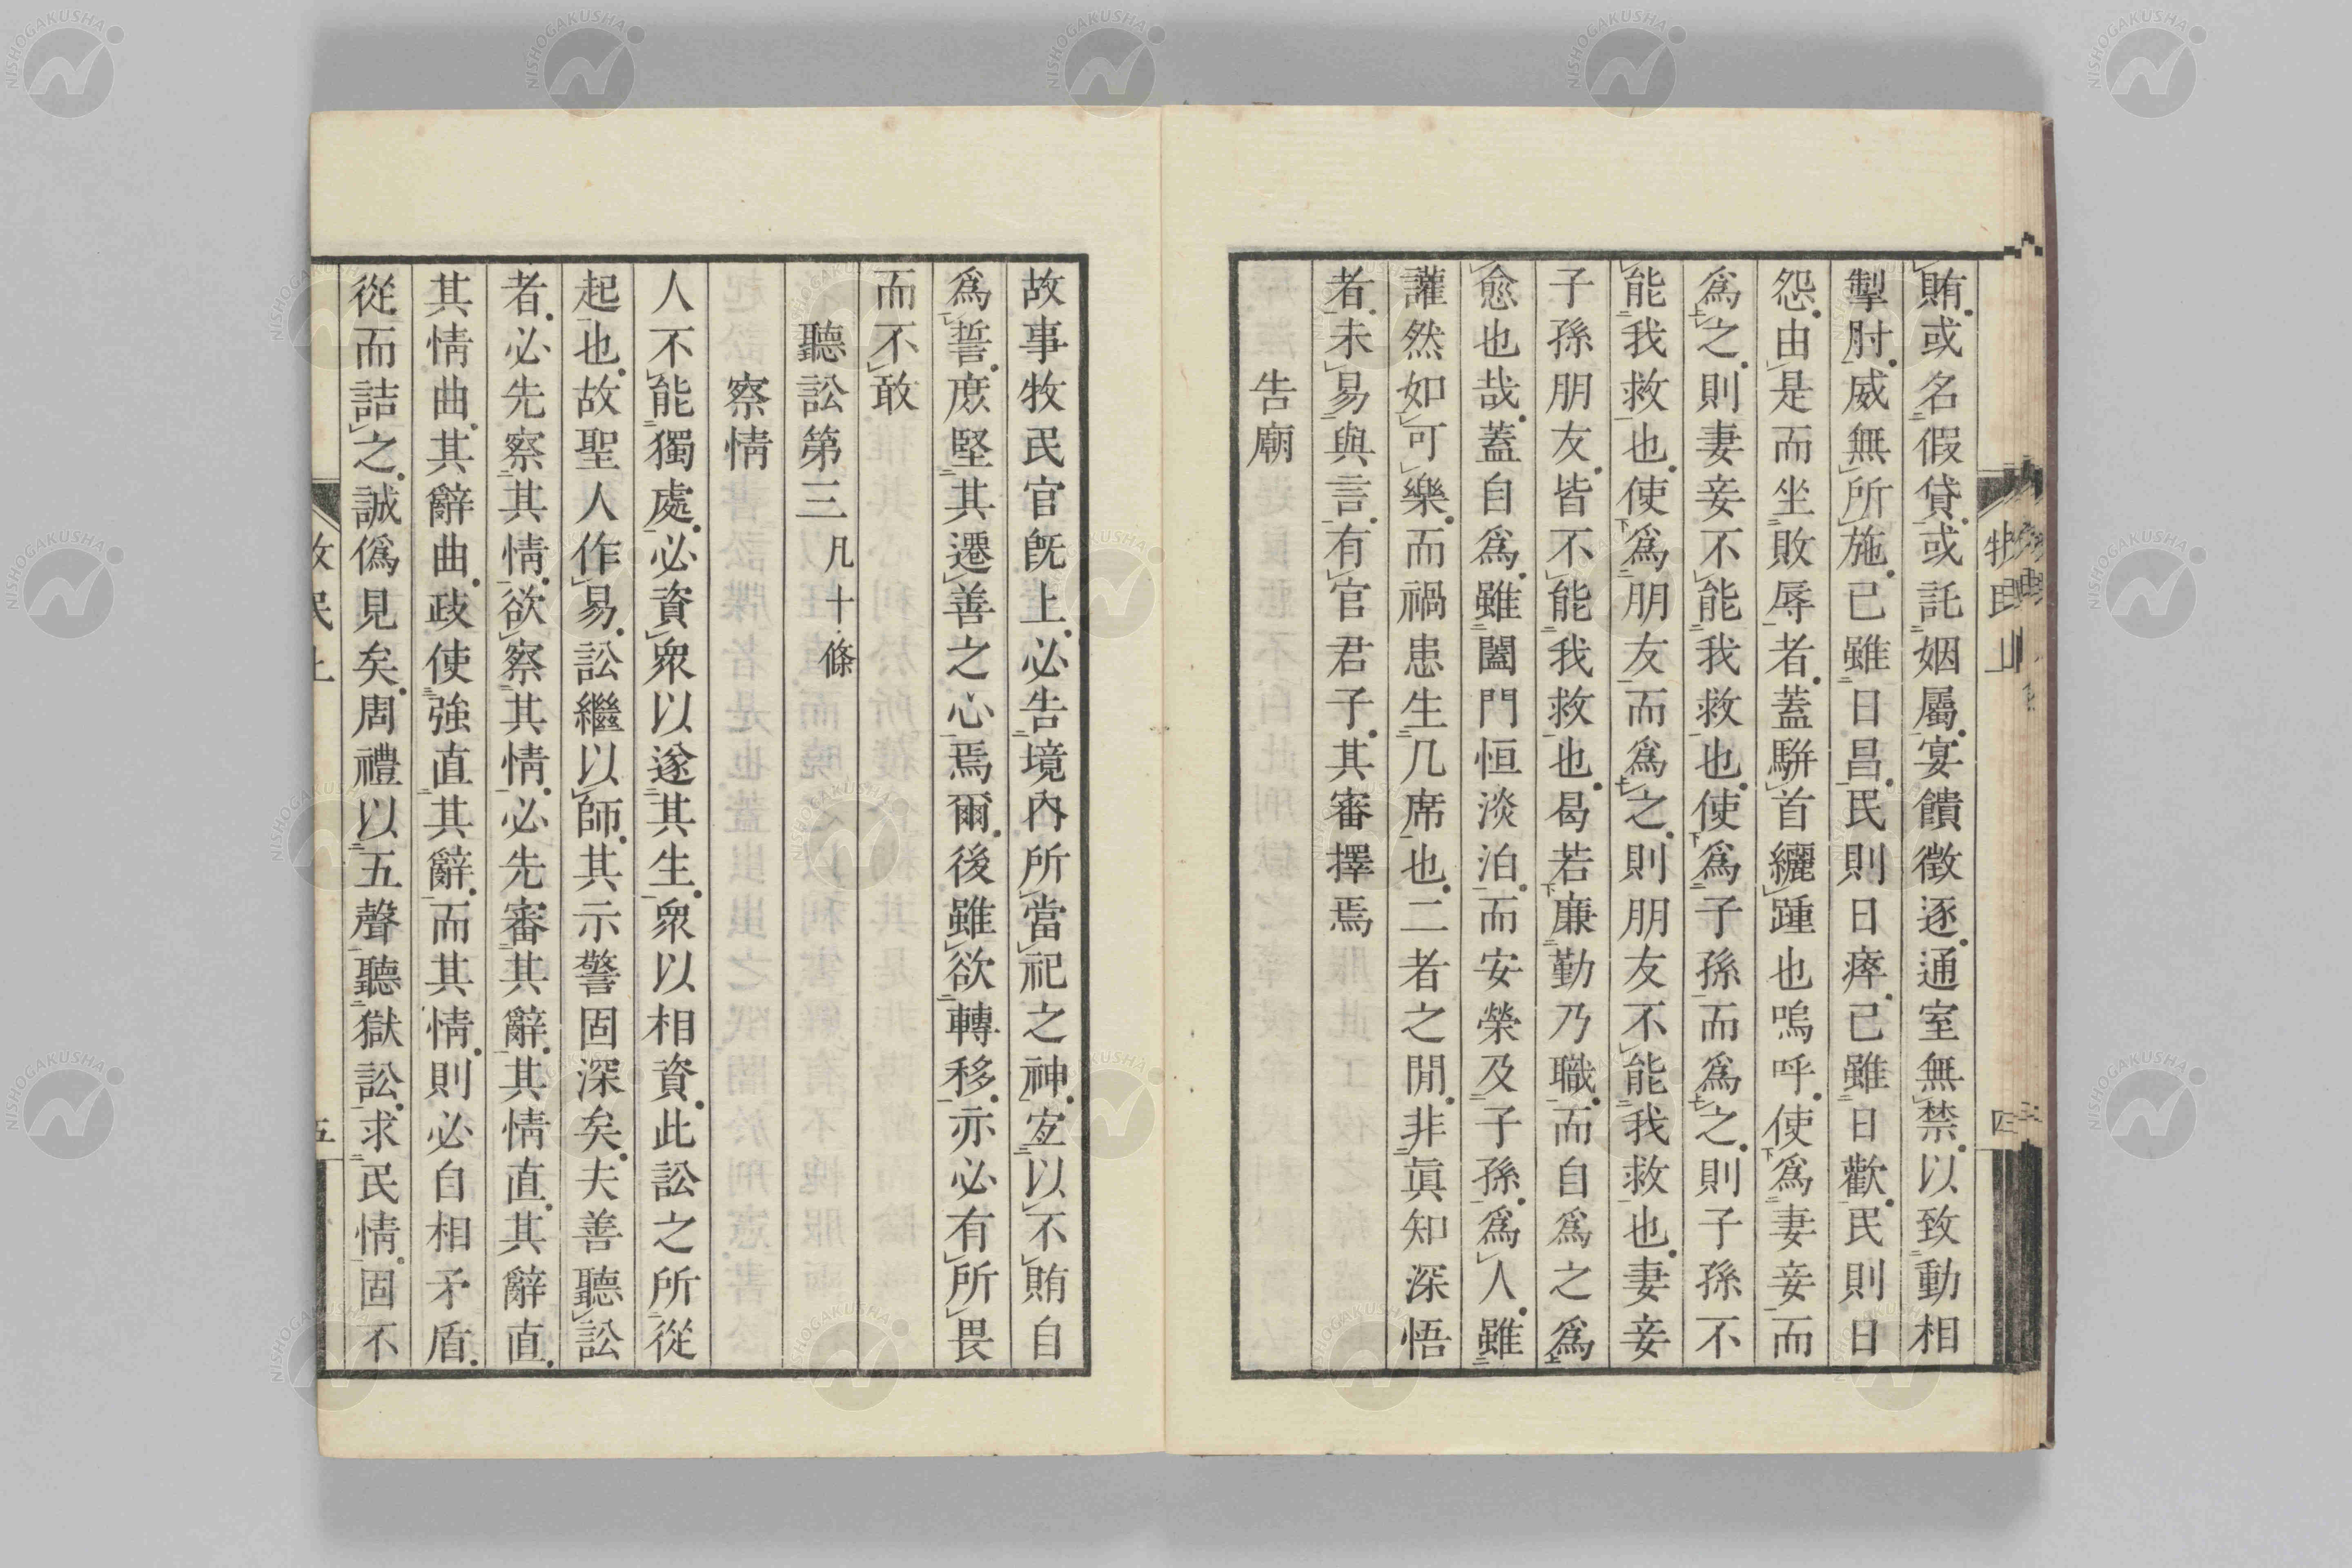 賄或名假貸或託姻屬宴饋徴逐通室無禁以致動相
掣肘威無所施已雖日昌民則日瘁已雖日歡民則日
怨由是而坐敗辱者蓋駢首纚踵也嗚呼使爲妻妾而
爲之則妻妾不能我救也使爲子孫而爲之則子孫不
能我救也使爲朋友而爲之則朋友不能我救也妻妾
子孫朋友皆不能我救也曷若廉勤乃職而自爲之爲
愈也哉蓋自爲雖闔門恒淡泊而安榮及子孫爲人雖
讙然如可樂而禍患生几席也二者之閒非眞知深悟
者未易與言有官君子其審擇焉
告廟
故事牧民官旣上必告境內所當祀之神宐以不賄自
爲誓庶堅其遷善之心焉爾後雖欲轉移亦必有所畏
而不敢
聽訟第三凡十條
察情
人不能獨處必資衆以遂其生衆以相資此訟之所從
起也故聖人作易訟繼以師其示警固深矣夫善聽訟
者必先察其情欲察其情必先審其辭其情直其辭直
其情曲其辭曲政使強直其辭而其情則必自相矛盾
從而詰之誠僞見矣周禮以五聲聽獄訟求民情固不
牧民上
五